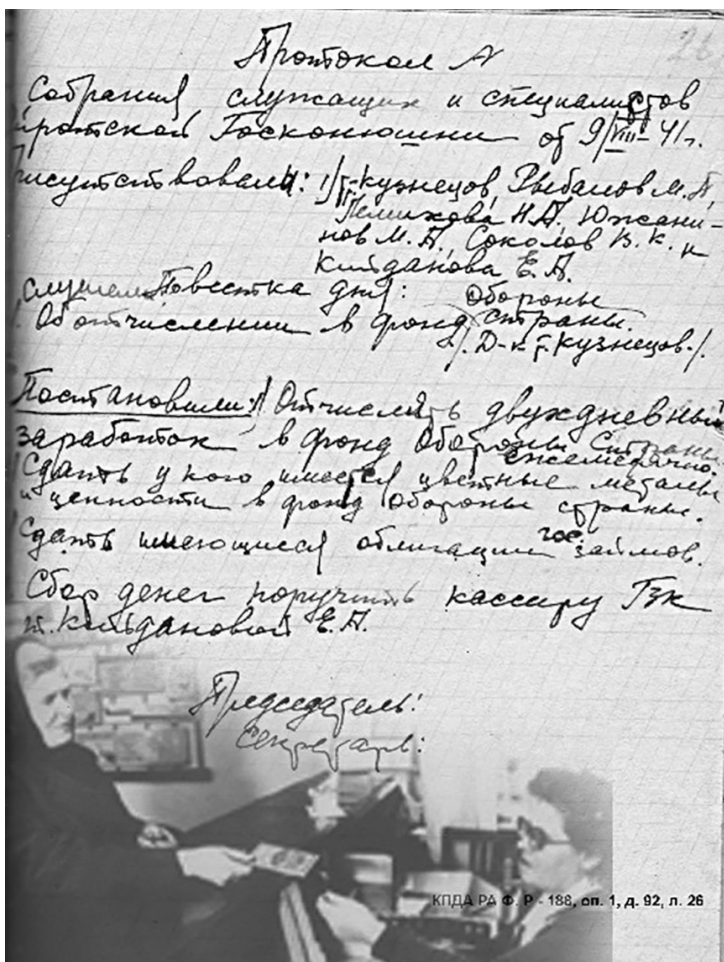 26
Протокол №
Собрания служащих и специалистов
ратской Госконюшни от 9/VIII-41г.
рисутствовали: 1/т. Кузнецов, Рыбалов М.П.
Н.П. Южани-
нов М.П., Соколов В.К. и
Кайданова Е.П.
слушали Повестка дня: обороны
Об отчислении в фонд страны.
/. Д-к т. Кузнецов./.
Постановили: Отчислять двухдневный
заработок в фонд Обороны Страны
ежемесячно.
Сдать у кого имеется цветные металы
и ценности в фонд обороны страны.
гос.
Сдать имеющиеся облигации займов.
Сбор денег поручить кассиру ГЗК
т. Кайдановой Е.П.
Председатель:
Секретарь:
КПДА РА Ф. Р - 188, оп. 1, д. 92, л. 26